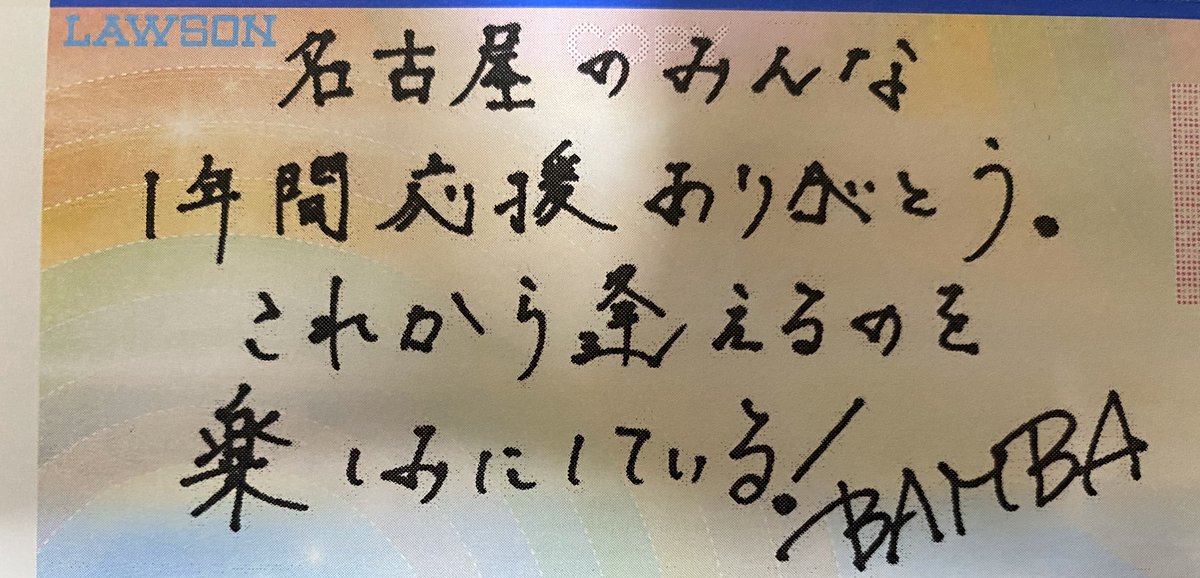 LAWSON
COPY
名古屋のみんな
1年間応援ありがとう.
これから逢えるのを
楽しみにしている!
BAMBA